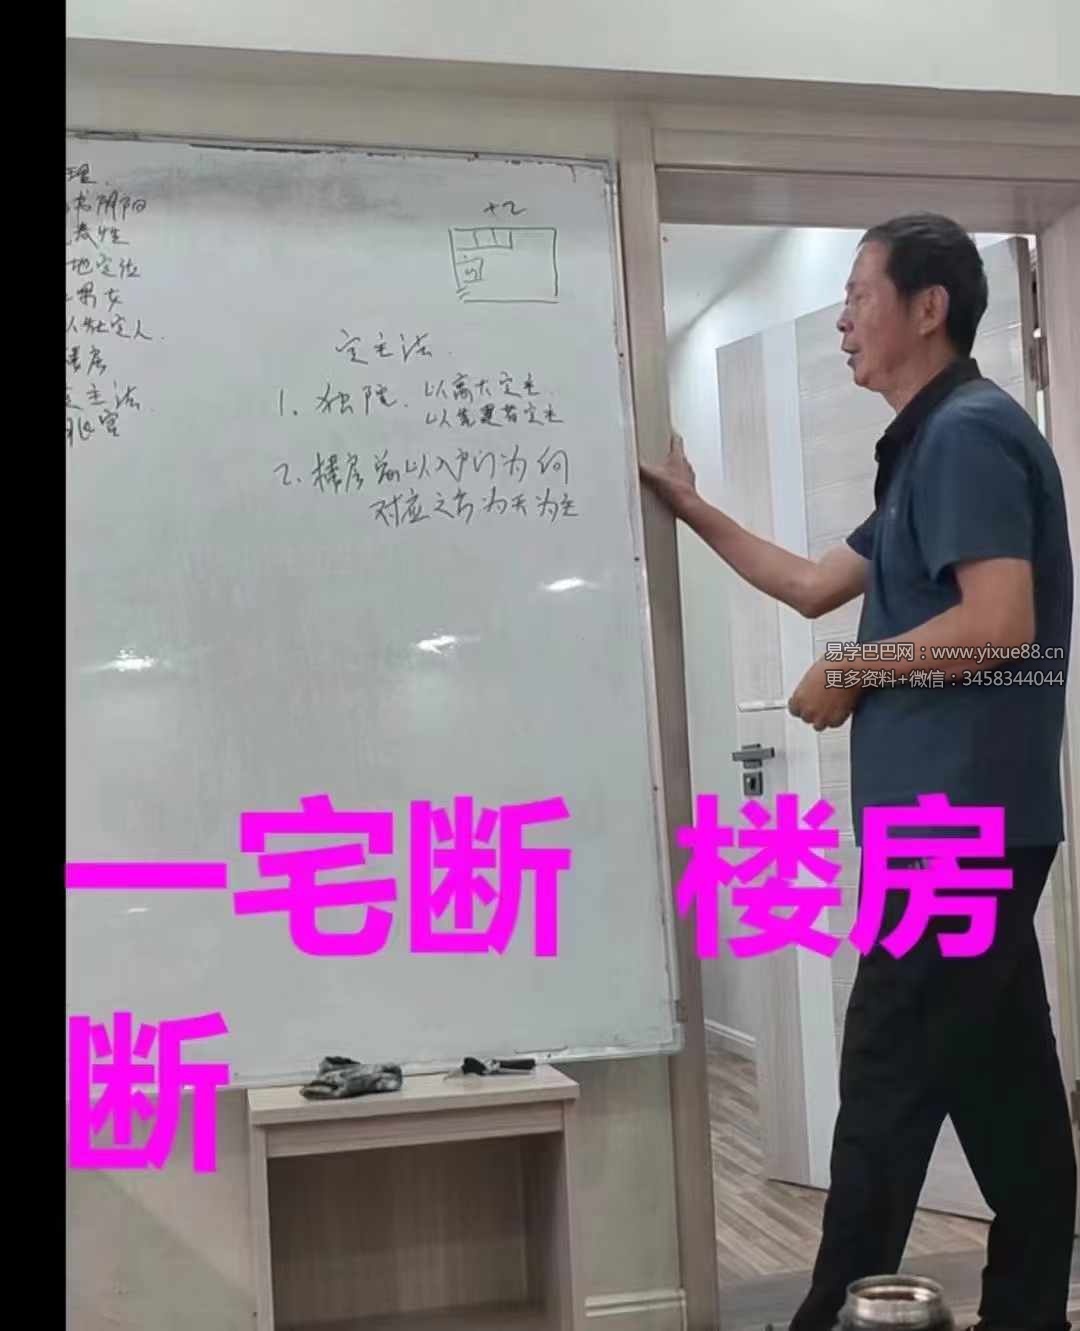 理
阴阳
地定位
男女
定人
楼房
主法
定主法
1. 独院. 以高大定主
以先建者定主
2. 楼房 以入户门为向
对应之方为天为主
易学巴巴网：www.yixue88.cn
更多资料+微信：3458344044
一宅断 楼房
断